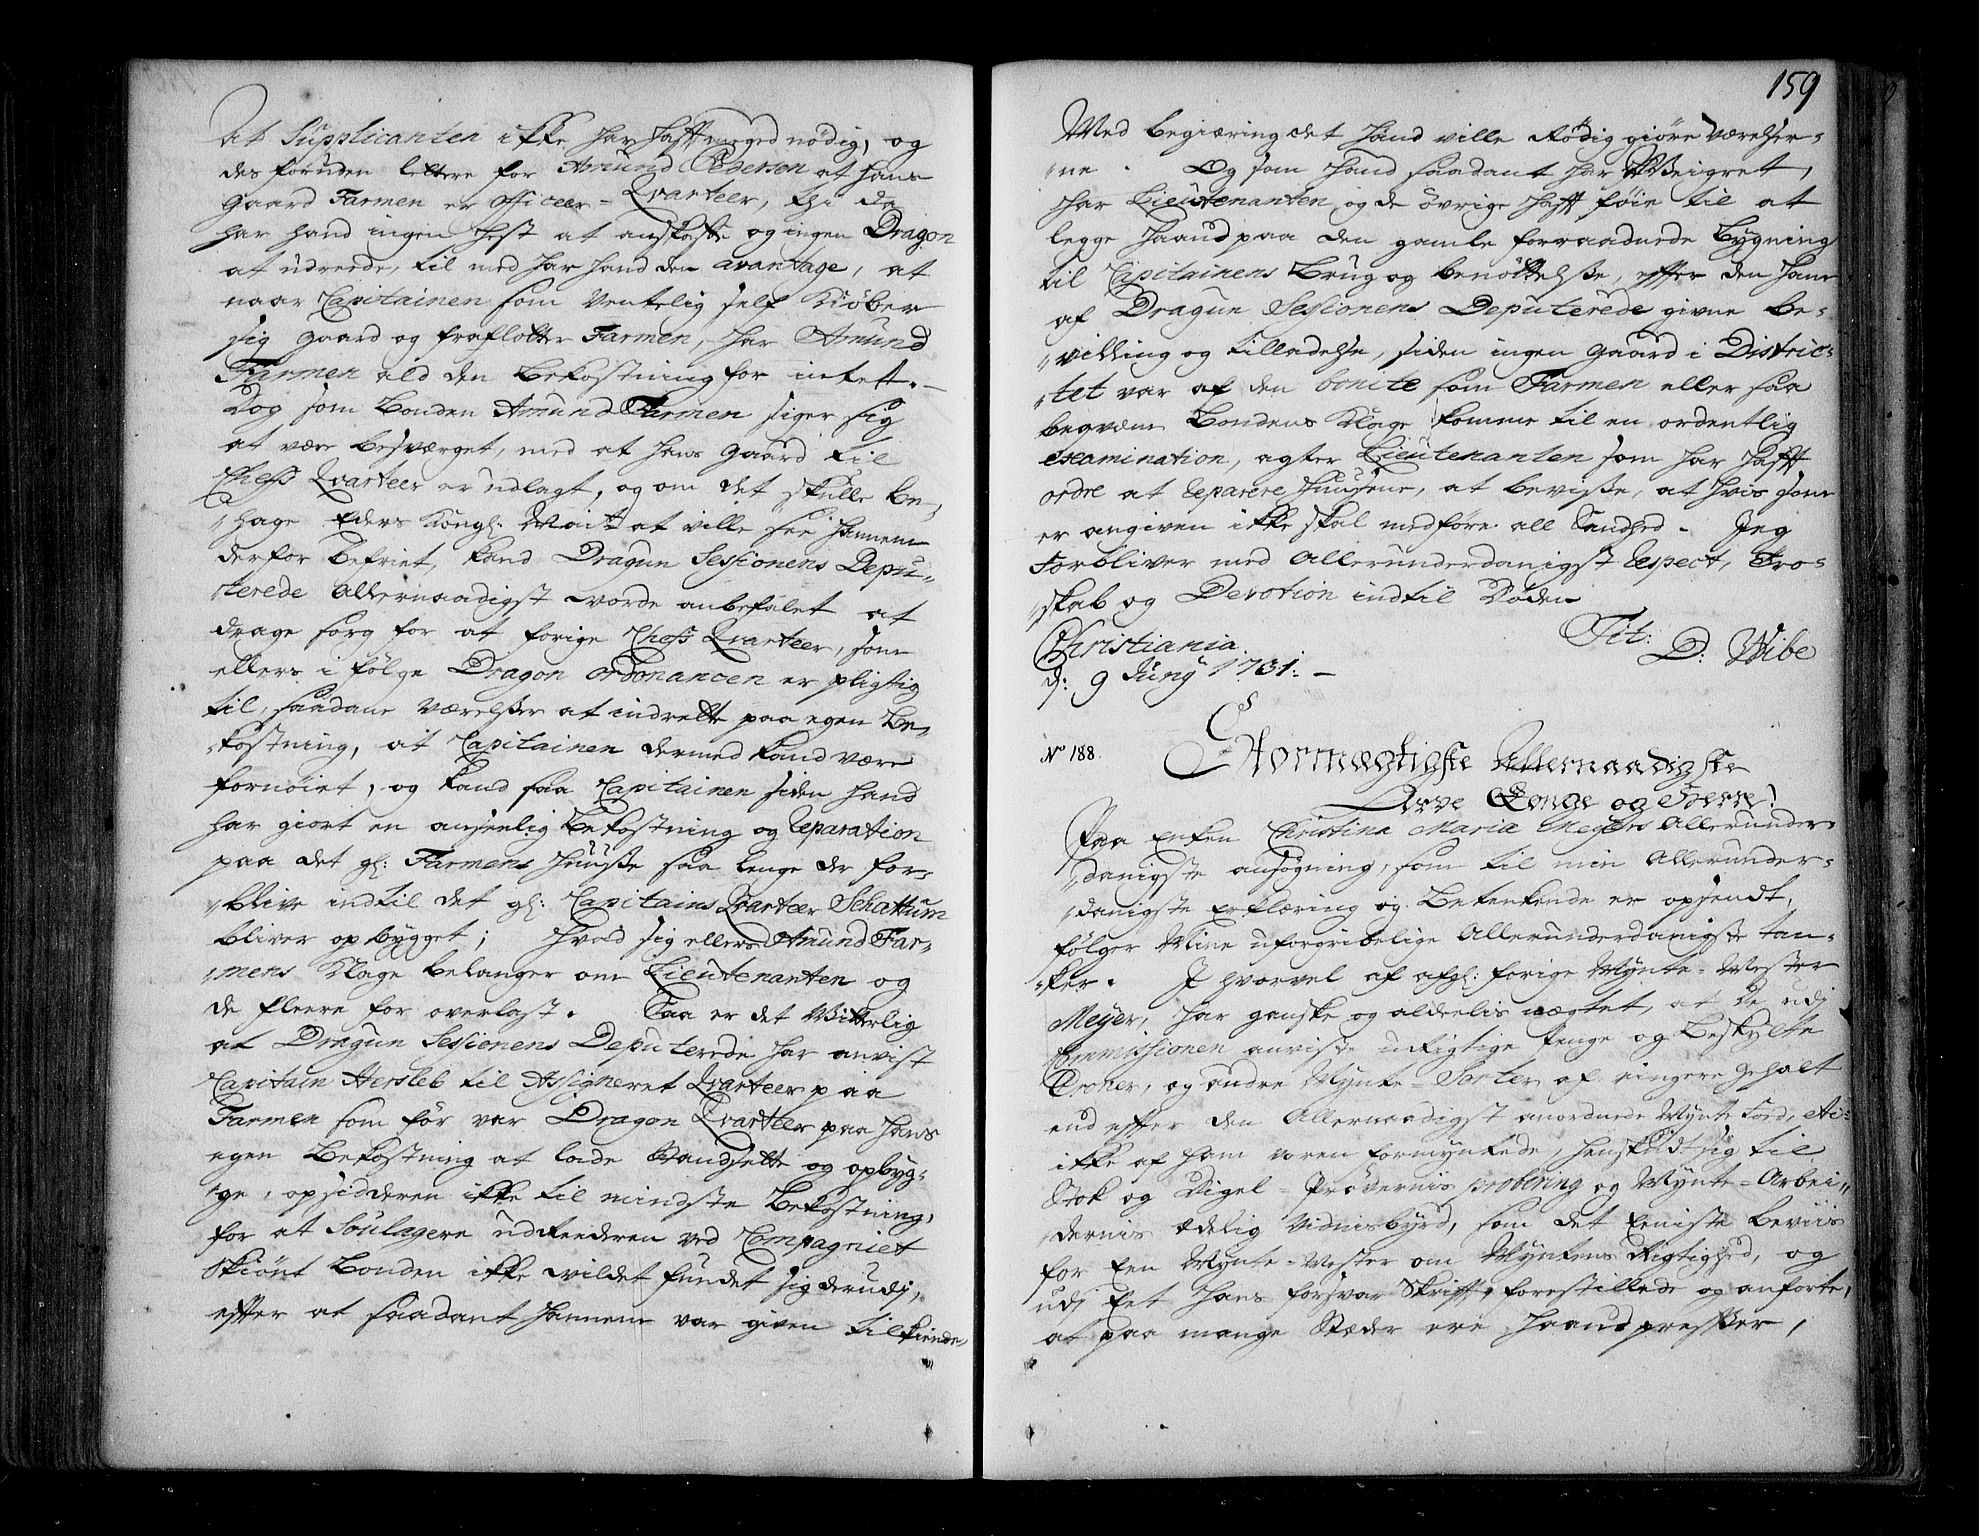 at Supplicanten ikke har hafft meget nödig, og
des foruden lettere for Amund Pedersen at hans
gaard Farmen er officeer-Qvarteer, thi da
har hand ingen hest at anskaffe og ingen Dragon
at udreede, til med har hand den avantage, at
naar Capitainen som ventelig self kiöber
sig gaard og fraflötter Farmen, har Amund
Farmen ald den bekostning for intet.-
Dog som bonden Amund Farmen siger sig
at være besværget, med at hans gaard til
Chefs Qvarteer er udlagt, og om det skulle be-
hage Eders Kongl: Mait: at ville see hannem
derfor befriet, kand Dragun Sessionens Depu-
terede allernaadigst worde anbefalet at
drage sorg for at forige Chefs Qvarteer, som
ellers i fölge Dragon ordonancen er pligtig
til, saadane værelser at indrette paa egen be-
kostning, at Capitainen dermed kand være
fornöiet, og kand saa Capitainen siden hand
har giort en anseelig bekostning og Reparation
paa det gl: Farmens Huuse saa lenge der for-
blive indtil det gl: Capitains Qvarteer Schattum
bliver opbygget; Hvad sig ellers Amund Far-
mens klage belanger om Lieutenanten og
de fleere for overlast. Saa er det witterlig
at Dragun Sessionens Deputerede har anvist
Capitain Hersleb til Assigneret Qvarteer paa
Farmen som för var Dragon Qvarteer paa hans
egen bekostning at lade istandsette og opbyg-
ge, opsidderen ikke til mindste bekostning,
for at Soulagere udreederen ved Compagniet
skiönt bonden ikke vildet fundet sig derudj,
effter at saadant hannem var given tilkiende,
159
Med begiæring at hand ville Rödig giöre værelser-
ne. Og som hand saadant har weigret,
har Lieutenanten og de övrige hafft föie til at
legge haand paa den gamle forraadnede bygning
til Capitainens brug og benöttelse, effter den ham
af Dragun Sessionens Deputerede givne be-
villing og tilladelse, siden ingen gaard i Distric-
tet var af den bonite som Farmen eller saa
beqvem. Bondens klage komme til en ordentlig
examination, agter Lieutenanten som har hafft
ordre at reparere huusene, at beviise, at hvis som
er angiven ikke skal medföre all Sandhed. Jeg
forbliver med allerunderdanigst Respect, tro-
skab og Devotion indtil döden
Tit:
D: Wibe
Christiania
d: 9 Juny 1731.-
No 188.
Stormægtigste Allernaadigste
Arve Konge og Herre!
Paa Enken Christina Maria Meyers allerunder-
danigste ansögning, som til min allerunder-
danigste Erklæring og betenkende er opsendt,
fölger mine uforgribelige allerunderdanigste tan-
ker. I hvorvel af afgl: forige Mynte-Mester
Meyer, har ganske og aldeelis nægtet, at de udj
Commissionen anviste urigtige penge og beskylte
Croner, og andre Mynte-Sorter af ringere gehalt
end effter den allernaadigst anordnede Mynte Fod,
ikke af ham varen formyntede, henskudt sig til
Stok og Digel-Prövernis probering og Mynte-Arbei-
dernis Edelig vidnisbyrd, som det Eeniste beviis
for een Mynte-Mester om Myntens Rigtighed, og
udj Eet hans forsvar Skrifft, forestillede og anförte,
at paa mange Stæder ere haandpresser,